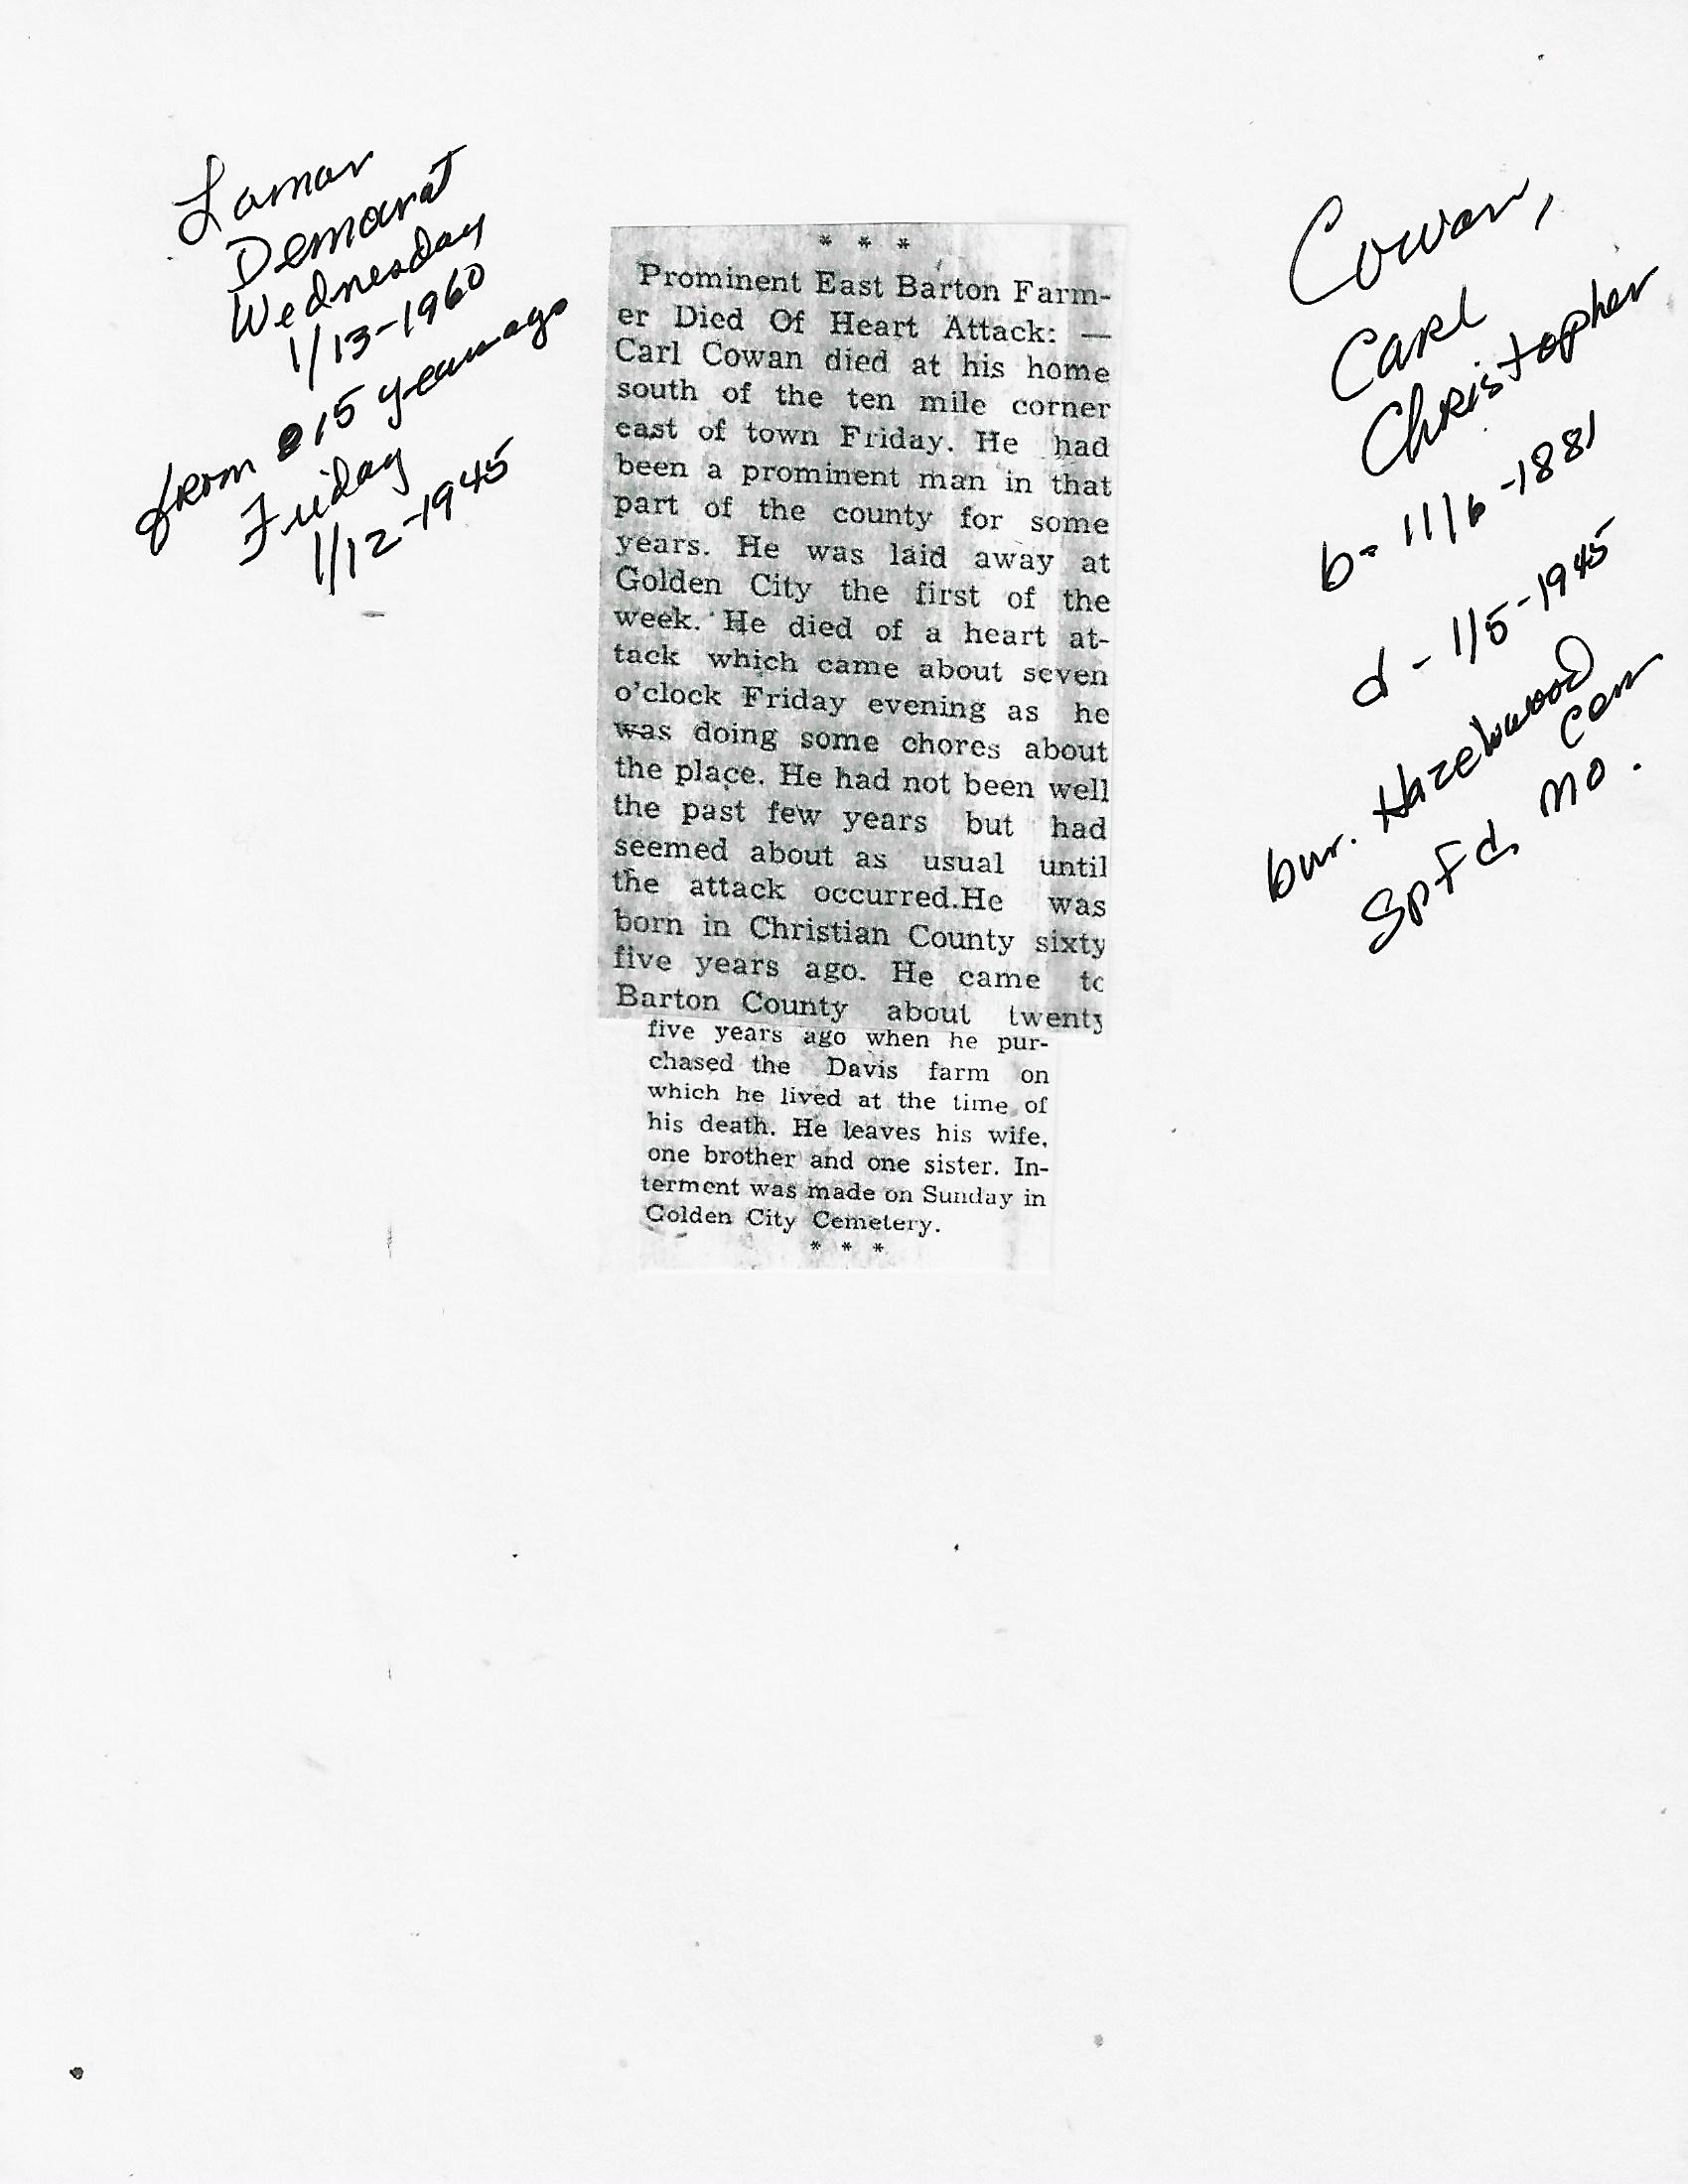 Lamar
Democrat
Wednesday
1/13-1960
from 15 years ago
Friday
1/12-1945
* * *
Prominent East Barton Farm-
er Died Of Heart Attack: —
Carl Cowan died at his home
south of the ten mile corner
east of town Friday. He had
been a prominent man in that
part of the county for some
years. He was laid away at
Golden City the first of the
week. He died of a heart at-
tack which came about seven
o'clock Friday evening as he
was doing some chores about
the place. He had not been well
the past few years but had
seemed about as usual until
the attack occurred.He was
born in Christian County sixty
five years ago. He came to
Barton County about twenty
five years ago when he pur-
chased the Davis farm on
which he lived at the time of
his death. He leaves his wife,
one brother and one sister. In-
terment was made on Sunday in
Golden City Cemetery.
* * *
Cowan,
Carl
Christopher
b- 11/6-1881
d - 1/5-1945
bur. Hazelwood
Cem
Spfd, Mo.